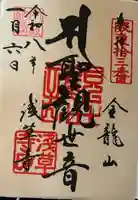 坂東拾三番
金龍山
聖観世音
浅草寺
令和八年
一月六日